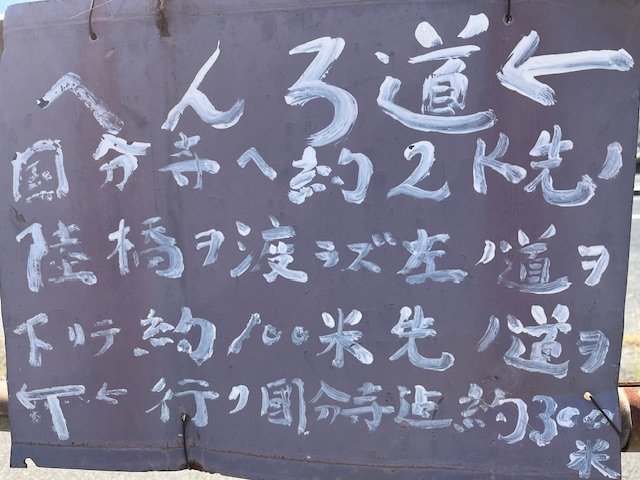 へんろ道 ←
国分寺へ約2K先ノ
陸橋ヲ渡ラズ左ノ道ヲ
下リテ約100米先ノ道ヲ
下←行ク国分寺迠約300米